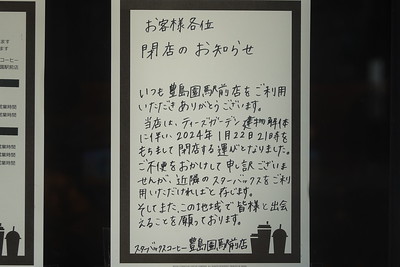 お客様各位
閉店のお知らせ
いつも豊島園駅前店をご利用
いただきありがとうございます。
当店は、ティーズガーデン建物解体
に伴い、2024年1月22日21時を
もちまして閉店する運びとなりました。
ご不便をおかけして申し訳ございま
せんが、近隣のスターバックスをご利
用いただければと存じます。
そしてまた、この地域で皆様と出会
えることを願っております。
スターバックスコーヒー豊島園駅前店
ます
コーヒー
園駅前店
営業時間
営業時間
営業時間
営業時間